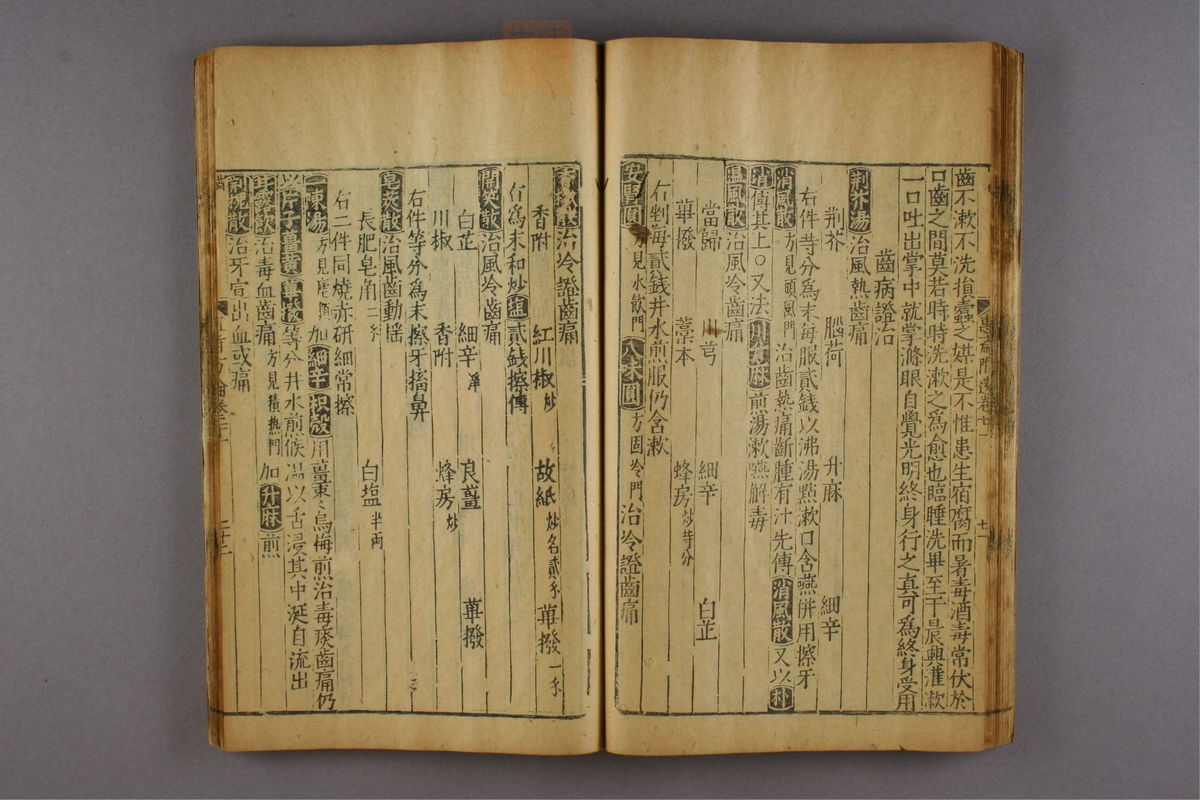 齒不漱不洗損蠹之媒是不惟患生宿腐而暑毒酒毒常伏於
口齒之間莫若時時洗漱之為愈也臨睡洗畢至于晨興灌漱
一口吐出掌中就掌滌眼自覺光明終身行之真可為終身受用
齒病證治
荆芥湯治風熱齒痛
荆芥 腦荷 升麻 細辛
右件䓁分為末每服貳錢以沸湯點漱口含嚥併用擦牙
消風散方見頭風門治齒熱痛齗腫有汁先傅消風散又以朴
消傅其上○又法 升麻煎湯漱嚥解毒
温風散治風冷齒痛
當歸 川芎 細辛 白芷
蓽撥 藁本 蜂房炒䓁分
右剉每貳錢井水煎服仍含漱
安腎圓方見水飲門八味圓方固冷門治冷證齒痛
治冷證齒痛
香附 紅川椒炒 故紙炒各貳 蓽撥一
右為末和炒塩貳錢擦傅
開笑散治風冷齒痛
白芷 細辛淨 良薑 蓽撥
川椒 香附 蜂房炒
右件等分為末擦牙搐鼻
皂莢散治風齒動揺
長肥皂角二 白塩半両
右二件同燒赤研細常擦
二陳湯方見 加細辛枳殻用薑棗烏梅煎治毒痰齒痛仍
以片子薑黄蓽撥等分井水煎候温以舌浸其中涎自流出
甘露飲治毒血齒痛方見積熱門加升麻煎
治牙宣出血或痛